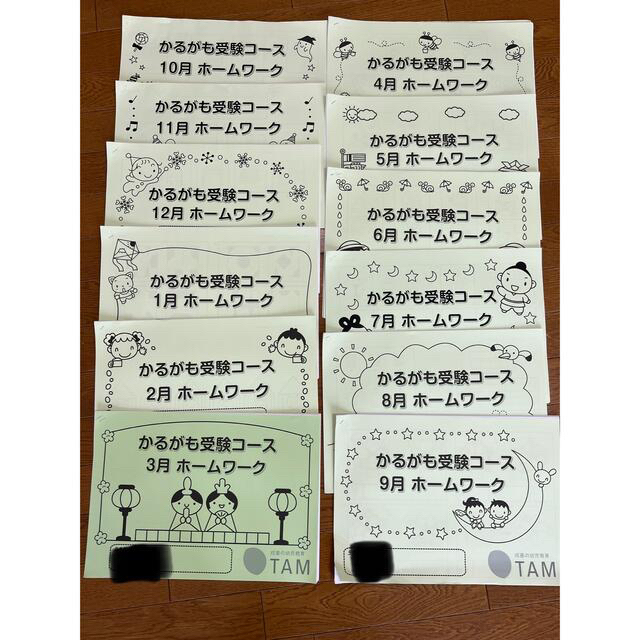 かるがも受験コース
10月 ホームワーク
かるがも受験コース
11月 ホームワーク
かるがも受験コース
12月 ホームワーク
かるがも受験コース
1月 ホームワーク
かるがも受験コース
2月 ホームワーク
かるがも受験コース
3月 ホームワーク
成基の幼児教育
TAM
かるがも受験コース
4月 ホームワーク
かるがも受験コース
5月 ホームワーク
かるがも受験コース
6月 ホームワーク
かるがも受験コース
7月 ホームワーク
かるがも受験コース
8月 ホームワーク
かるがも受験コース
9月 ホームワーク
成基の幼児教育
TAM